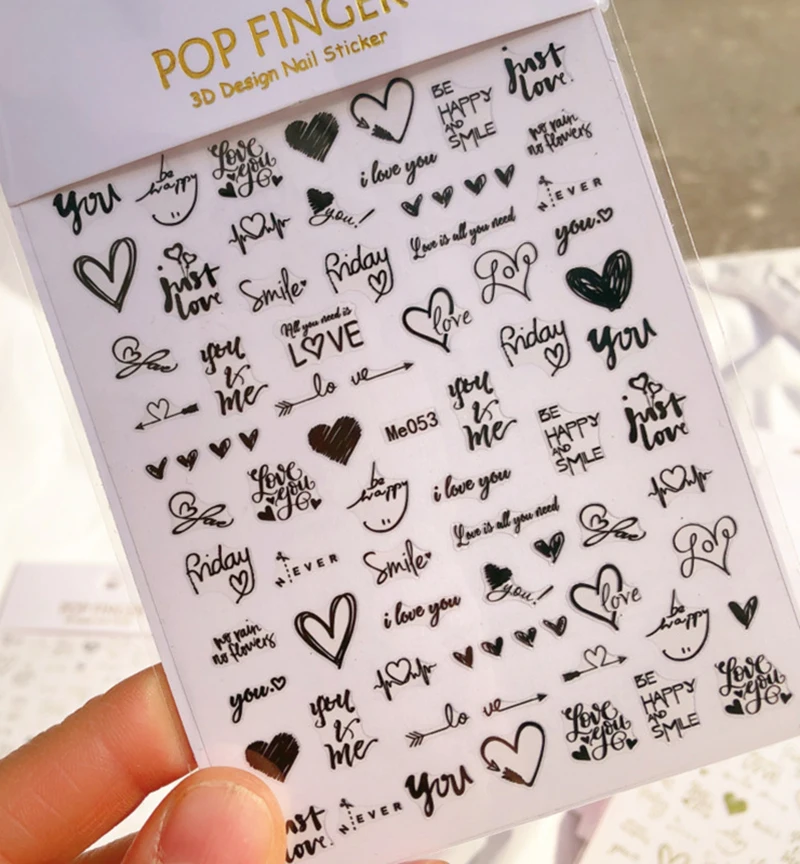 POP FINGER
3D Design Nail Sticker
just
love
BE
HAPPY
AND
SMILE
no rain
no flowers
Love
you
i love you
be
happy
you
NEVER
you!
Love is all you need
you.
just
love
Smile
Friday
Love
All you need is
LOVE
love
Friday
you
you
&
me
lo ve
Me053
you
&
me
BE
HAPPY
AND
SMILE
just
love
Love
you
be
happy
i love you
Love is all you need
Friday
NEVER
Smile
Love
you!
love
no rain
no flowers
i love you
be
happy
you.
you
&
me
lo ve
Love
you
BE
HAPPY
AND
SMILE
Love
you
ust
love
NEVER
you